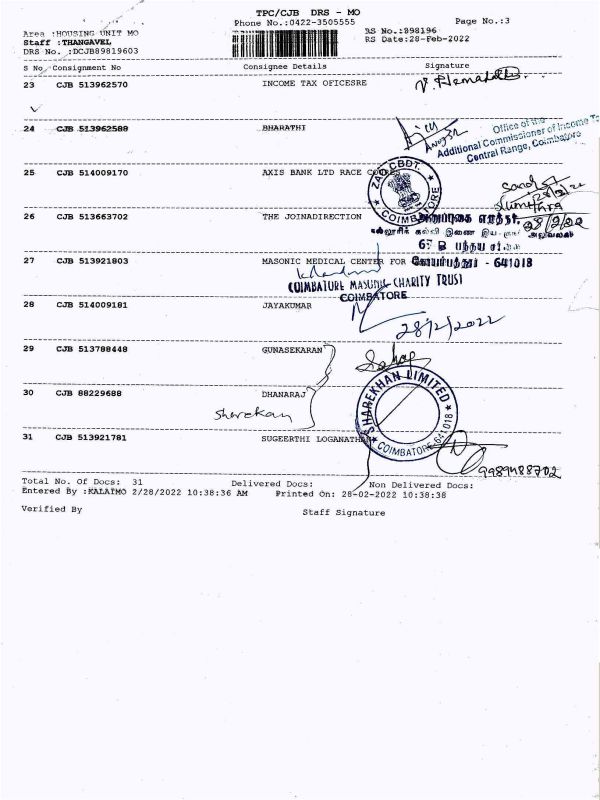 TPC/CJB DRS - MO
Phone No.:0422-3505555
Page No.:3
Area :HOUSING UNIT MO
RS No.:898196
Staff :THANGAVEL
RS Date:28-Feb-2022
DRS No. :DCJB89819603
S No Consignment No Consignee Details Signature
23 CJB 513962570 INCOME TAX OFICESRE
24 CJB 513962588 BHARATHI
Office of the
Additional Commissioner of Income
Central Range, Coimbatore
25 CJB 514009170 AXIS BANK LTD RACE COURE
CBDT
COIMBATORE
26 CJB 513663702 THE JOINADIRECTION
28/2/22
27 CJB 513921803 MASONIC MEDICAL CENTER FOR
- 641018
COIMBATORE MASONIC CHARITY TRUST
COIMBATORE
28 CJB 514009181 JAYAKUMAR
28/2/2022
29 CJB 513788448 GUNASEKARAN
30 CJB 88229688 DHANARAJ
Sharekan
SHAREKHAN LIMITED
COIMBATORE 641 018
31 CJB 513921781 SUGEERTHI LOGANATHAN
9989488702
Total No. Of Docs: 31 Delivered Docs: Non Delivered Docs:
Entered By :KALAIMO 2/28/2022 10:38:36 AM Printed On: 28-02-2022 10:38:38
Verified By Staff Signature